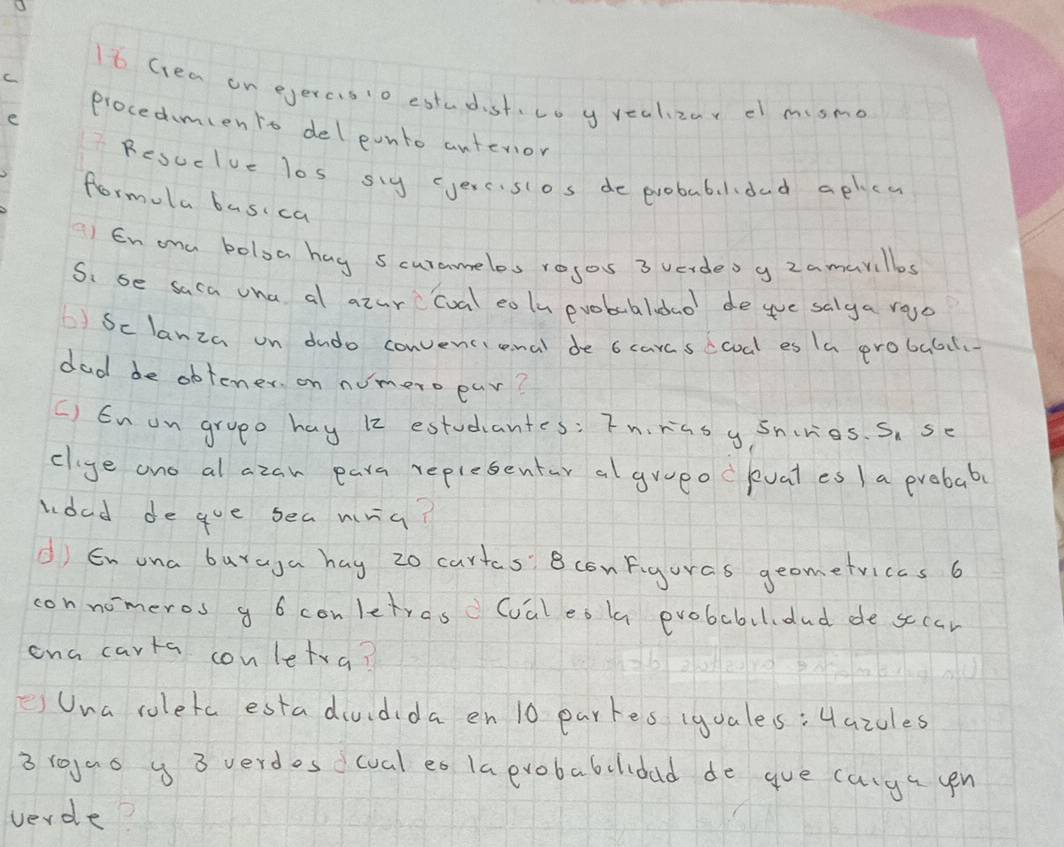 16 Crea un ejercisio estadistico y realizar el mismo
procedimiento del punto anterior
17 Resuelve los sig ejercisios de probabilidad aplica
formula basica
a) En una bolsa hay 5 caramelos rojos 3 verdes y 2 amarillos
Si se saca una al azar ¿Cual es la probabilidad de que salga rojo?
b) Se lanza un dado convencional de 6 caras ¿cual es la probabili-
dad de obtener un número par?
c) En un grupo hay 12 estudiantes: 7 niñas y 5 niños. Si se
elige uno al azar para representar al grupo ¿cual es la probabi
lidad de que sea niña?
d) En una baraja hay 20 cartas: 8 con Figuras geometricas 6
con números y 6 con letras ¿Cuál es la probabilidad de sacar
una carta con letra?
e) Una ruleta esta dividida en 10 partes iguales: 4 azules
3 rojas y 3 verdes ¿cual es la probabilidad de que caiga en
verde?